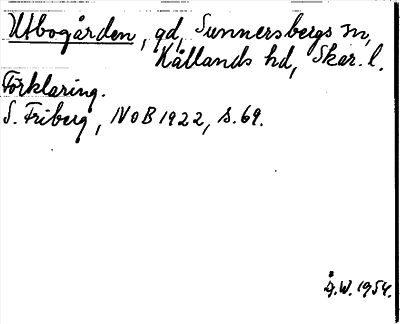 Utbogården, gd, Sunnersbergs sn,
Kållands hd, Skar. l.
Förklaring.
S. Friberg, NoB 1922, s. 69.
Å.W. 1954.